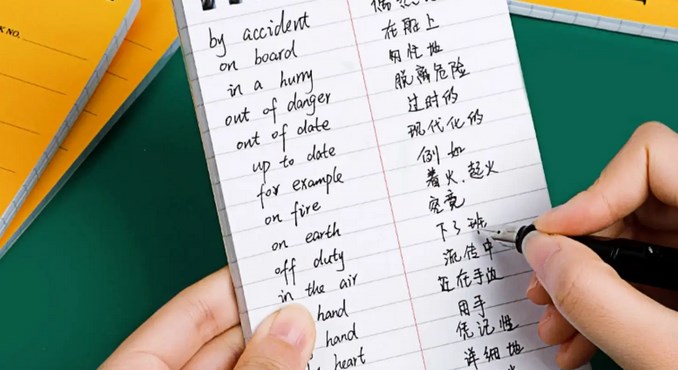 NO.
by accident
on board 在船上
in a hurry 匆忙地
out of danger 脱离危险
out of date 过时的
up to date 现代化的
for example 例如
on fire 着火.起火
on earth 究竟
off duty 下了班
in the air 流传中
hand 近在手边
hand 用手
heart 凭记性
详细地